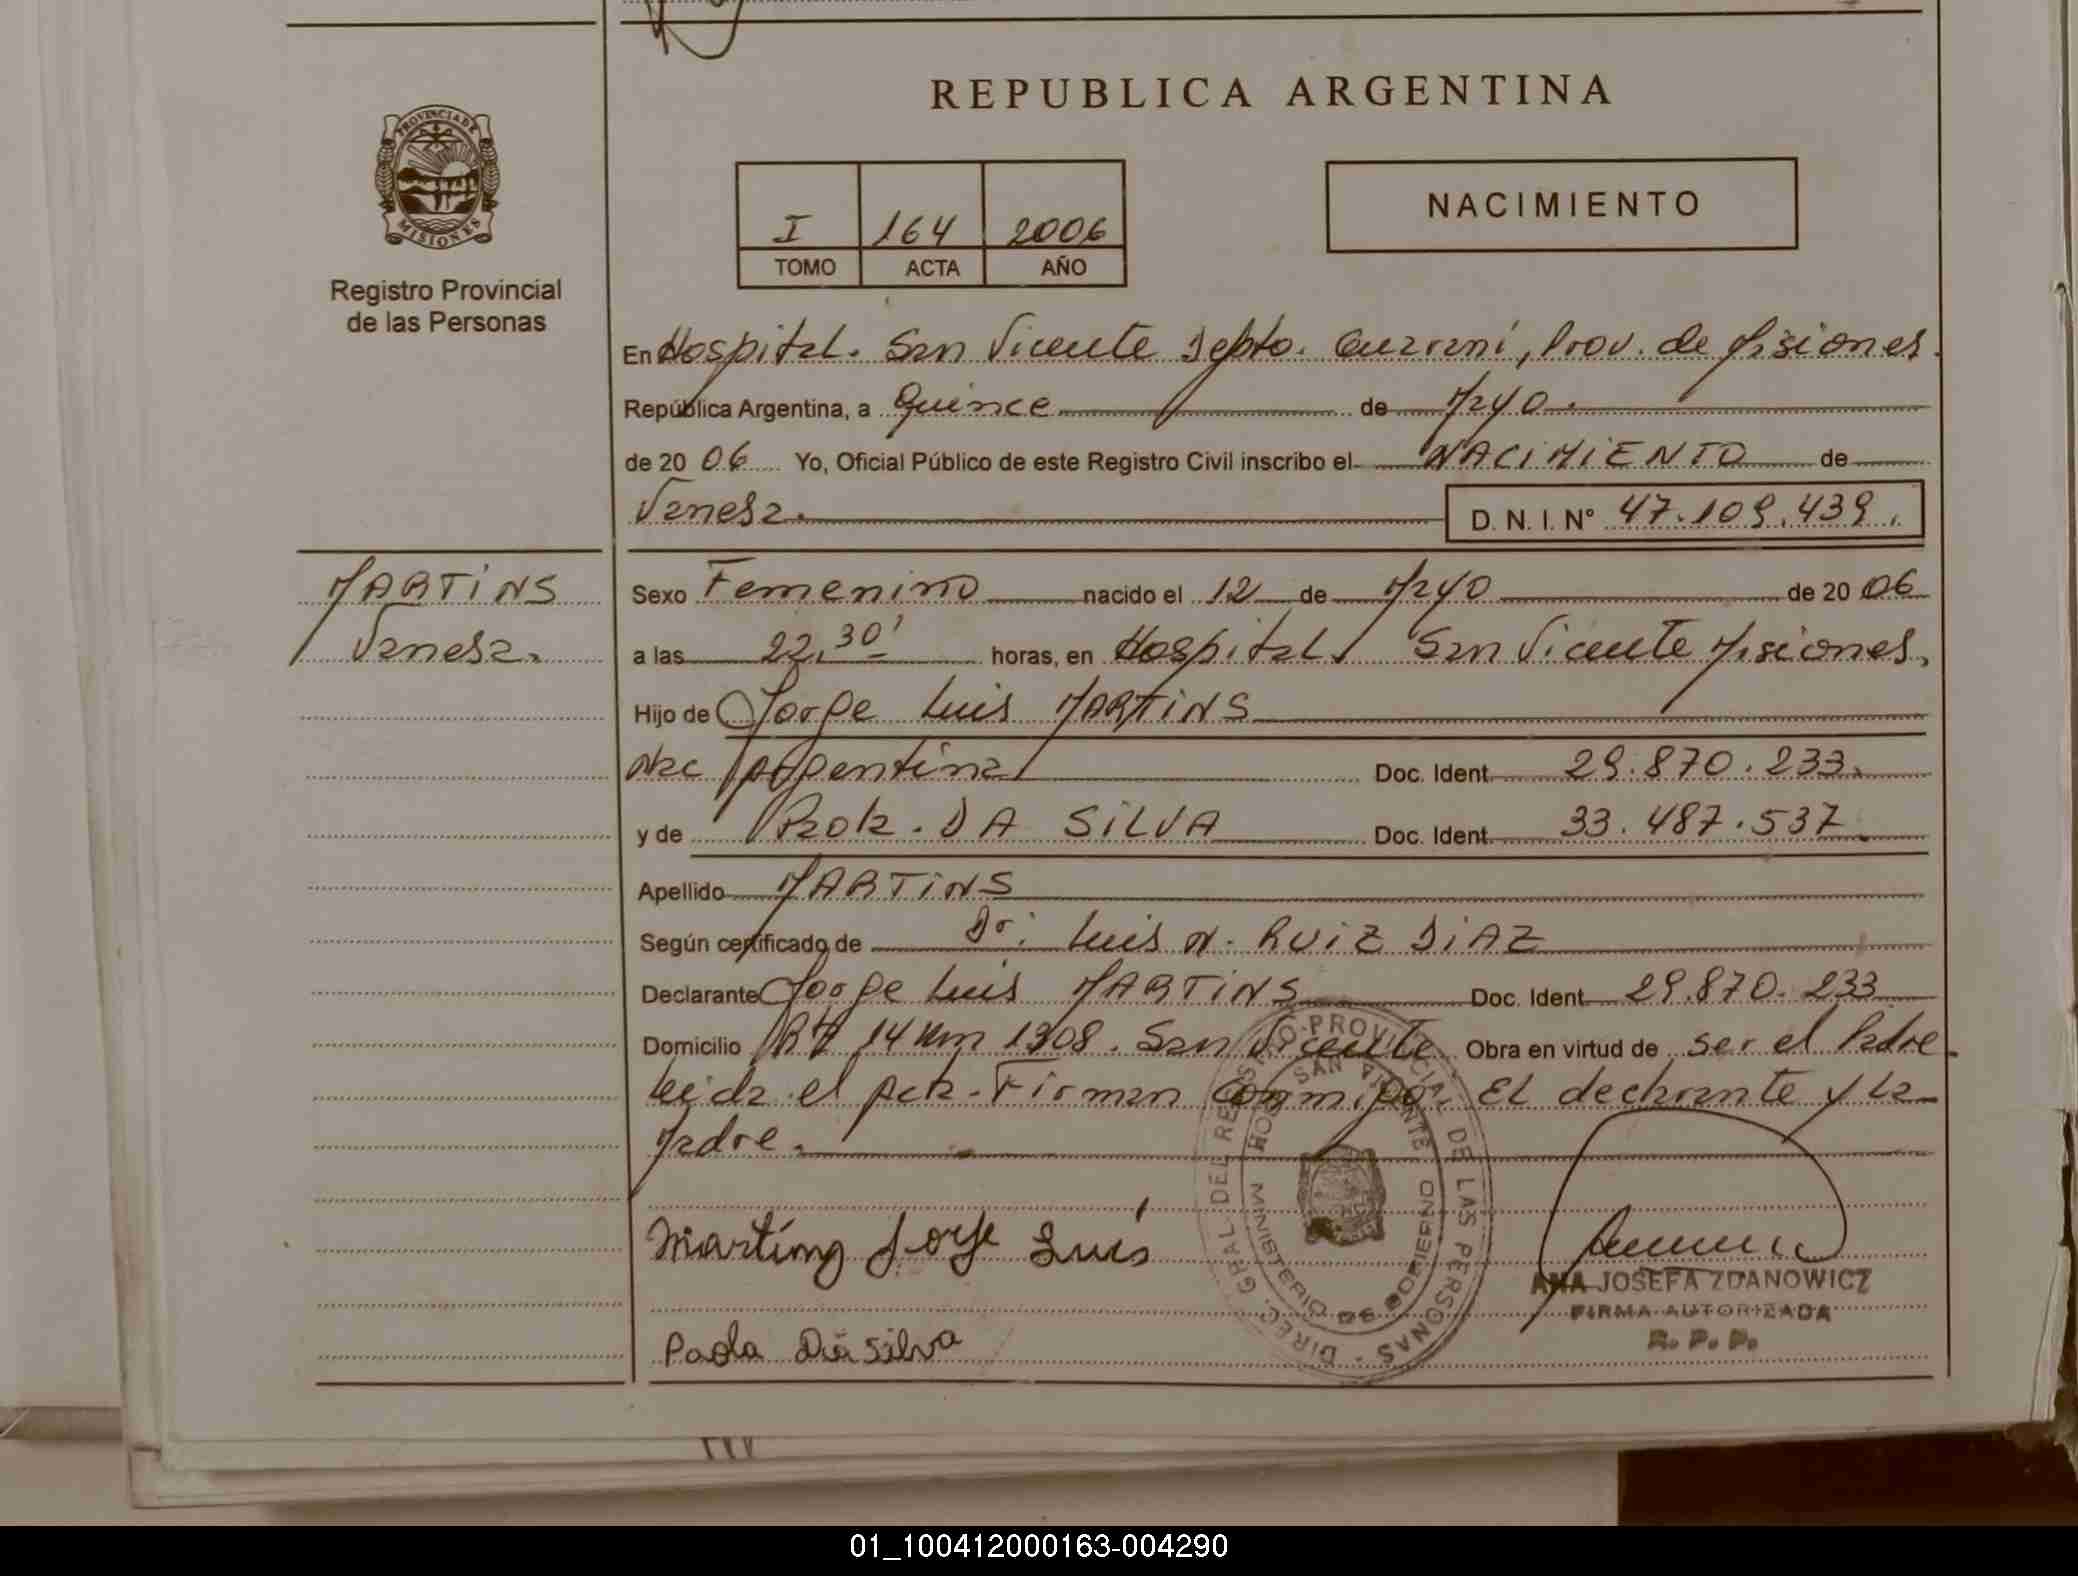 REPUBLICA ARGENTINA
PROVINCIA DE MISIONES
Registro Provincial
de las Personas
I 164 2006
TOMO ACTA AÑO
NACIMIENTO
En Hospital. San Vicente Depto. Guaraní, Prov. de Misiones.
República Argentina, a Quince de Mayo.
de 20 06 Yo, Oficial Público de este Registro Civil inscribo el NACIMIENTO de
Vanesa. D. N. I. Nº 47.109.439.
MARTINS
Vanesa.
Sexo Femenino nacido el 12 de Mayo de 20 06
a las 22,30' horas, en Hospital. San Vicente Misiones.
Hijo de Jorge Luis MARTINS
Nac Argentina Doc. Ident. 29.870.233.
y de Paola. DA SILVA Doc. Ident. 33.487.537.
Apellido MARTINS
Según certificado de Dr: Luis N. RUIZ DIAZ
Declarante Jorge Luis MARTINS Doc. Ident. 29.870.233
Domicilio 14 Km 1308. San Vicente Obra en virtud de ser el Padre
Leida el Acta. Firman conmigo. El declarante y la
Madre.
Martins Jorje Luis
Paola Da silva
DIREC. GRAL. DEL REGISTRO PROVINCIAL DE LAS PERSONAS
HOSP. SAN VICENTE
MINISTERIO DE GOBIERNO
ANA JOSEFA ZDANOWICZ
FIRMA AUTORIZADA
R. P. P.
01_100412000163-004290